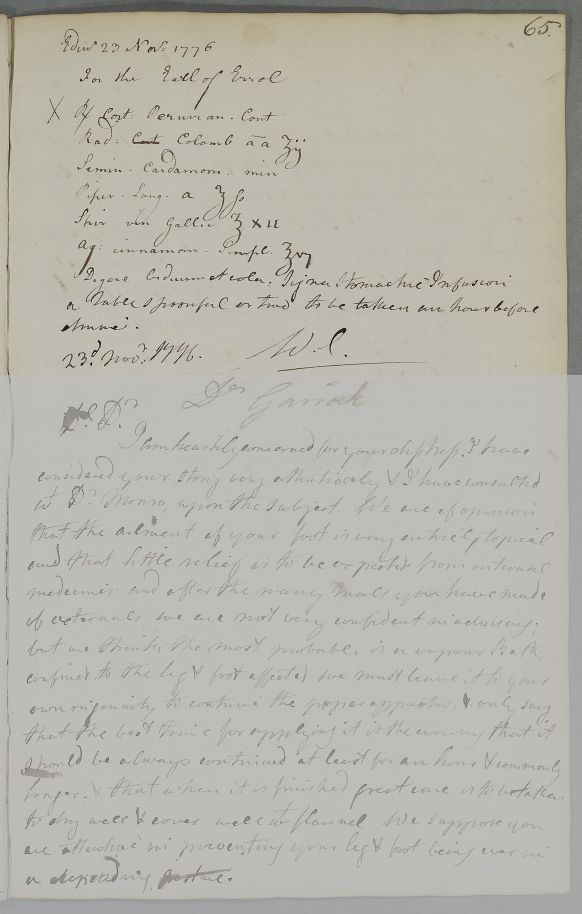 65.
Edinr 23 Novr. 1776
For the Earl of Errol
X ℞ Cort: Peruvian. Cont
Rad: Cort Colomb āā ʒij
Semin. Cardamom. min
Piper. Long. a ʒſs
Spir vin Gallic ℥ XII
Aq: cinnamom. Simpl. ℥vj
Digere biduum et cola. Signa Stomachic Infusion
a Table Spoonful or two to be taken an hour before
dinner.
23d. Novr. 1776. W. C.
Dr Garioch
Dr. Dr.
I am heartily concerned for your distress. I have
considered your Story very attentively & I have consulted
wt Dr. Monro upon the subject. We are of opinion
that the ailment of your foot is very entirely topical
and that little relief is to be expected from internal
medecines: and after the many trials you have made
of externals, we are not very confident in advising;
but we think the most probable is a vapour Bath,
confined to the leg & foot affected we must leave it to your
own ingenuity to contrive the proper apparatus, & only say
that the best time for applying it is the evening that it
should be always continued at least for an hour & commonly
longer. & that when it is finished great care is to be taken
to dry well & cover well wt flannel. We suppose you
are attentive in preventing your leg & foot being ever in
a depending posture.